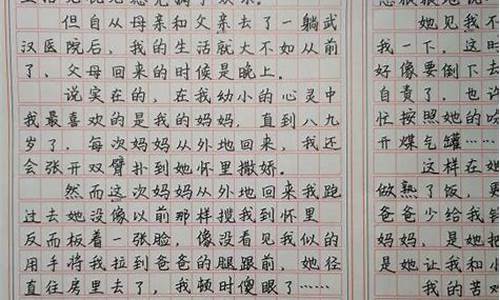 但自从母亲和父亲去了一躺武
汉医院后，我的生活就大不如从前
了、父母回来的时候是晚上。
说实在的，在我幼小的心灵中
我最喜欢的是我的妈妈，直到八九
岁了．每次妈妈从外地回来，我还
会张开双臂扑到她怀里撒娇。
然而这次妈妈从外地回来我跑
过去她没像以前那样搅我到怀里
反而板着一张脸，像没看见我似的
用手将我拉到爸爸的腿跟前，她径
直往房里去了，我顿时傻眼了……
她见我不
我一下，这时
好像要倒下去
自责了．也许
忙按照她的吩
开煤气罐……
这样在她
做熟了饭，
爸爸少给我
妈妈，是她把
是她让我和小
我的苦